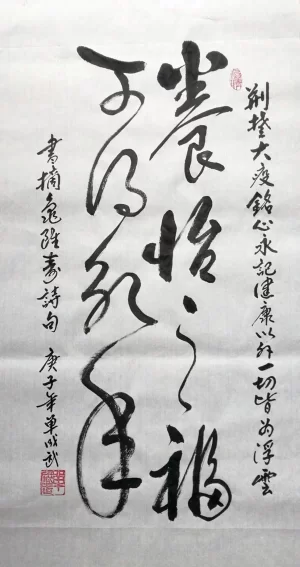 荆楚大疫銘心永記健康以外一切皆为浮雲
養怡之福
可得永年
書摘龜雖壽詩句 庚子年單武